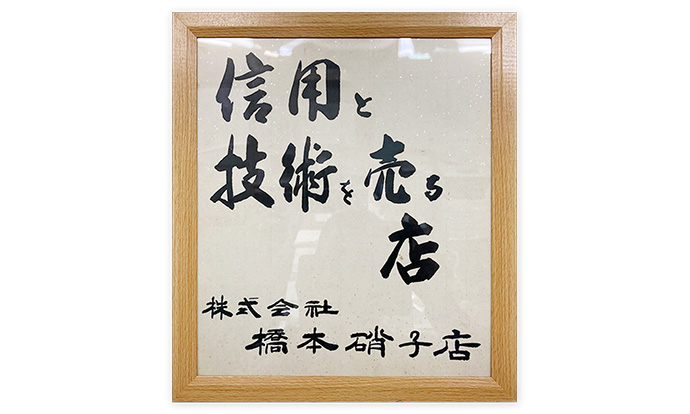 信用と
技術を売る
店
株式会社
橋本硝子店